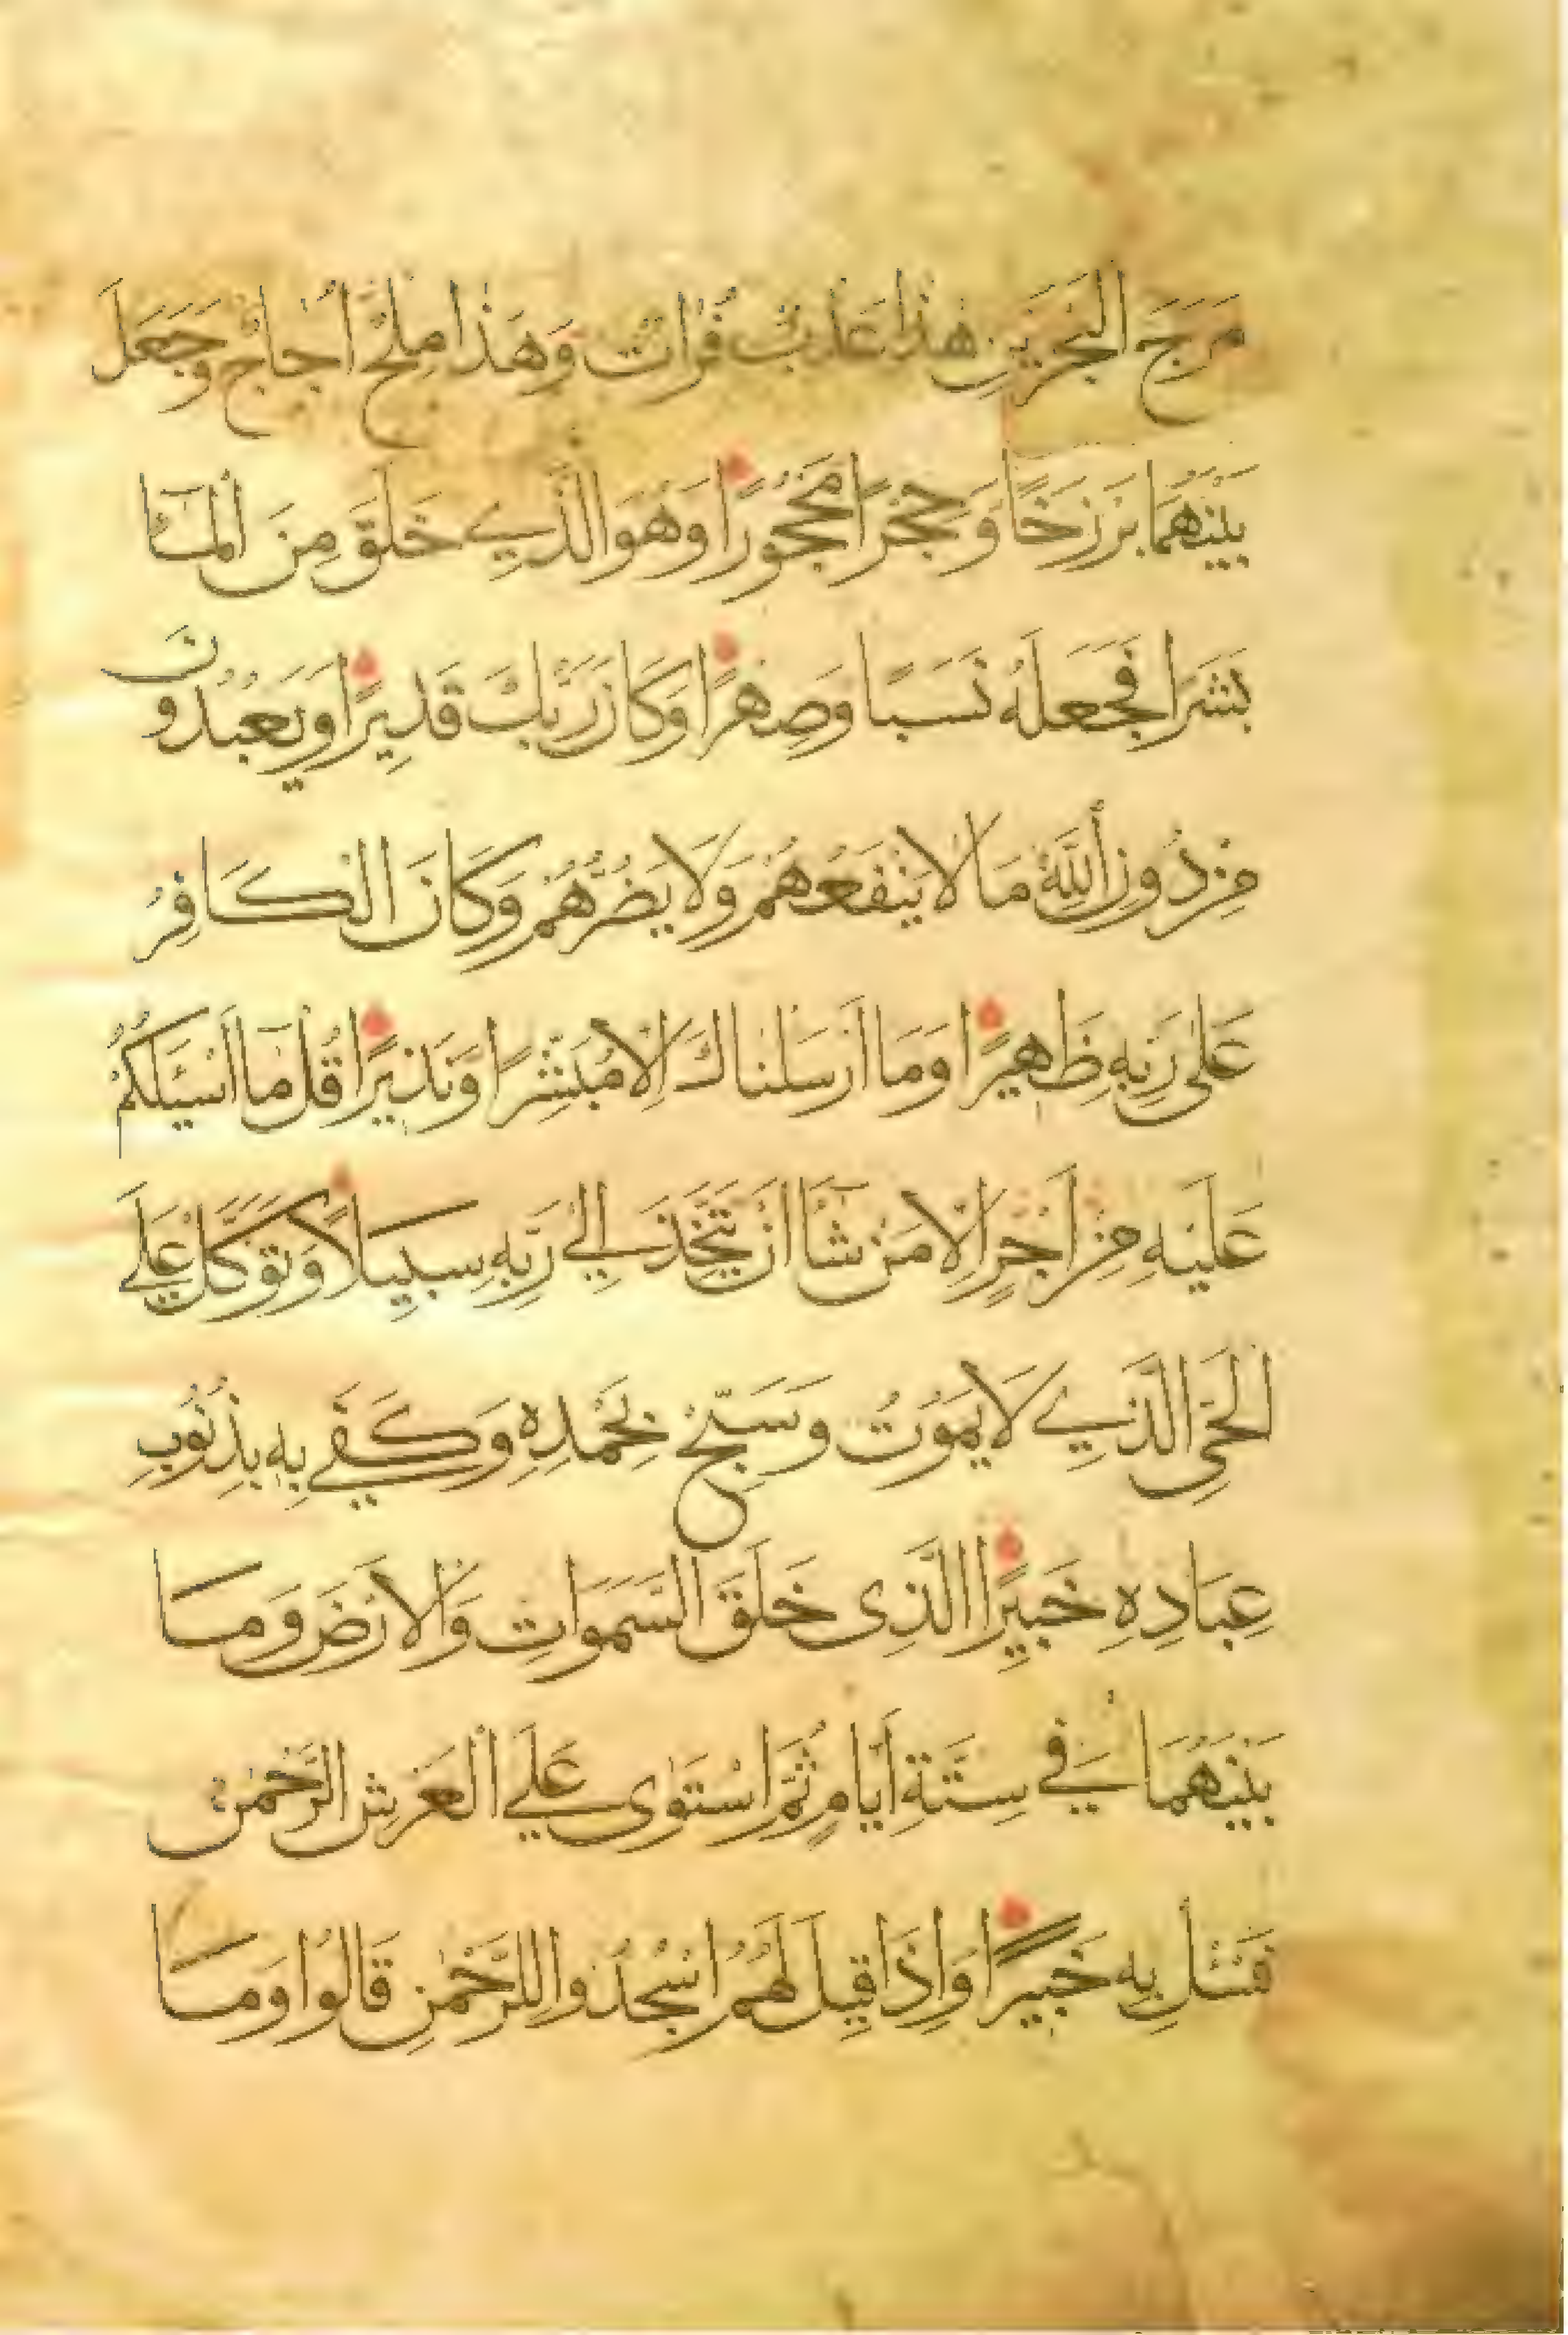 مَرَجَ الْبَحْرَيْنِ هٰذَا عَذْبٌ فُرَاتٌ وَهٰذَا مِلْحٌ اُجَاجٌ وَجَعَلَ
بَيْنَهُمَا بَرْزَخًا وَحِجْرًا مَحْجُورًا وَهُوَ الَّذِي خَلَقَ مِنَ الْمَآ
بَشَرًا فَجَعَلَهُ نَسَبًا وَصِهْرًا وَكَانَ رَبُّكَ قَدِيرًا وَيَعْبُدُونَ
مِنْ دُونِ اللّٰهِ مَا لَا يَنْفَعُهُمْ وَلَا يَضُرُّهُمْ وَكَانَ الْكَافِرُ
عَلٰى رَبِّهِ ظَهِيرًا وَمَا اَرْسَلْنَاكَ اِلَّا مُبَشِّرًا وَنَذِيرًا قُلْ مَا اَسْـَٔلُكُمْ
عَلَيْهِ مِنْ اَجْرٍ اِلَّا مَنْ شَآ اَنْ يَتَّخِذَ اِلٰي رَبِّهِ سَبِيلًا وَتَوَكَّلْ عَلَي
الْحَيِّ الَّذِي لَا يَمُوتُ وَسَبِّحْ بِحَمْدِهِ وَكَفٰي بِهِ بِذُنُوبِ
عِبَادِهِ خَبِيرًا الَّذِى خَلَقَ السَّمَوَاتِ وَالْاَرْضَ وَمَا
بَيْنَهُمَا فِي سِتَّةِ اَيَّامٍ ثُمَّ اسْتَوٰى عَلَي الْعَرْشِ الرَّحْمٰنُ
فَسْـَٔلْ بِهِ خَبِيرًا وَاِذَا قِيلَ لَهُمُ اسْجُدُوا لِلرَّحْمٰنِ قَالُوا وَمَا